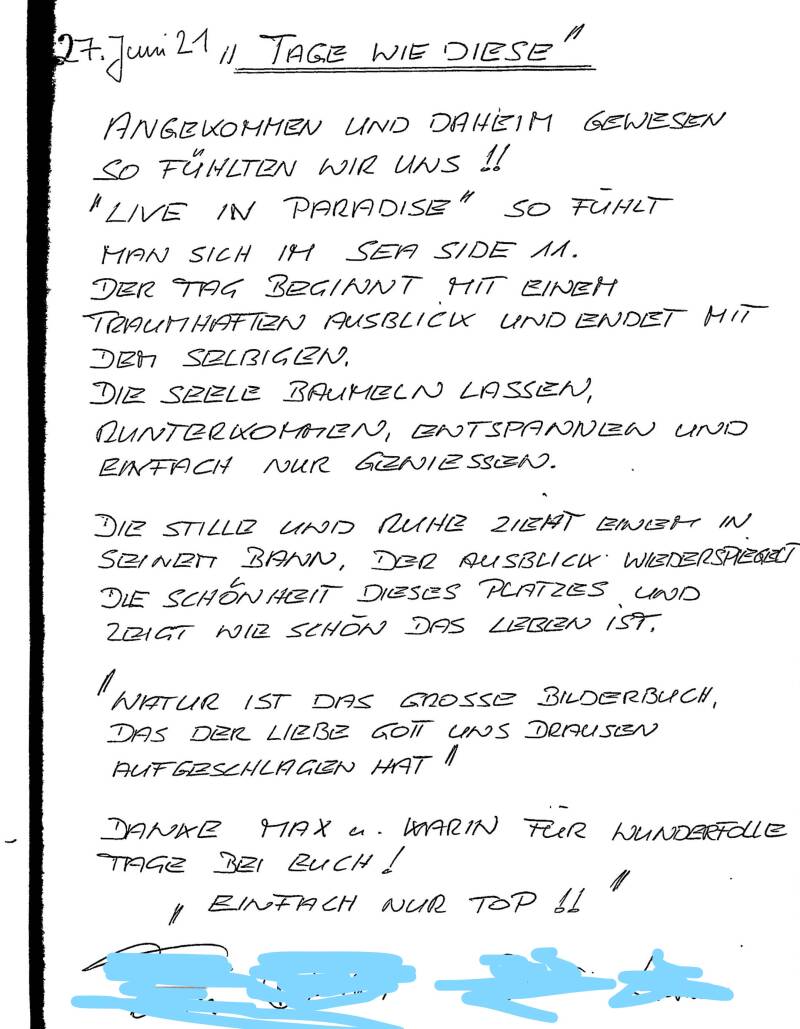 27. Juni 21 „TAGE WIE DIESE"
ANGEKOMMEN UND DAHEIM GEWESEN
SO FÜHLTEN WIR UNS !!
"LIVE IN PARADISE" SO FÜHLT
MAN SICH IM SEA SIDE 11.
DER TAG BEGINNT MIT EINEM
TRAUMHAFTEN AUSBLICK UND ENDET MIT
DEM SELBIGEN.
DIE SEELE BAUMELN LASSEN,
RUNTERKOMMEN, ENTSPANNEN UND
EINFACH NUR GENIESSEN.
DIE STILLE UND RUHE ZIEHT EINEM IN
SEINEM BANN, DER AUSBLICK WIEDERSPIEGELT
DIE SCHÖNHEIT DIESES PLATZES UND
ZEIGT WIE SCHÖN DAS LEBEN IST.
"NATUR IST DAS GROSSE BILDERBUCH,
DAS DER LIEBE GOTT UNS DRAUSEN
AUFGESCHLAGEN HAT"
DANKE MAX u. KARIN FÜR WUNDERFOLLE
TAGE BEI EUCH!
„EINFACH NUR TOP !!"